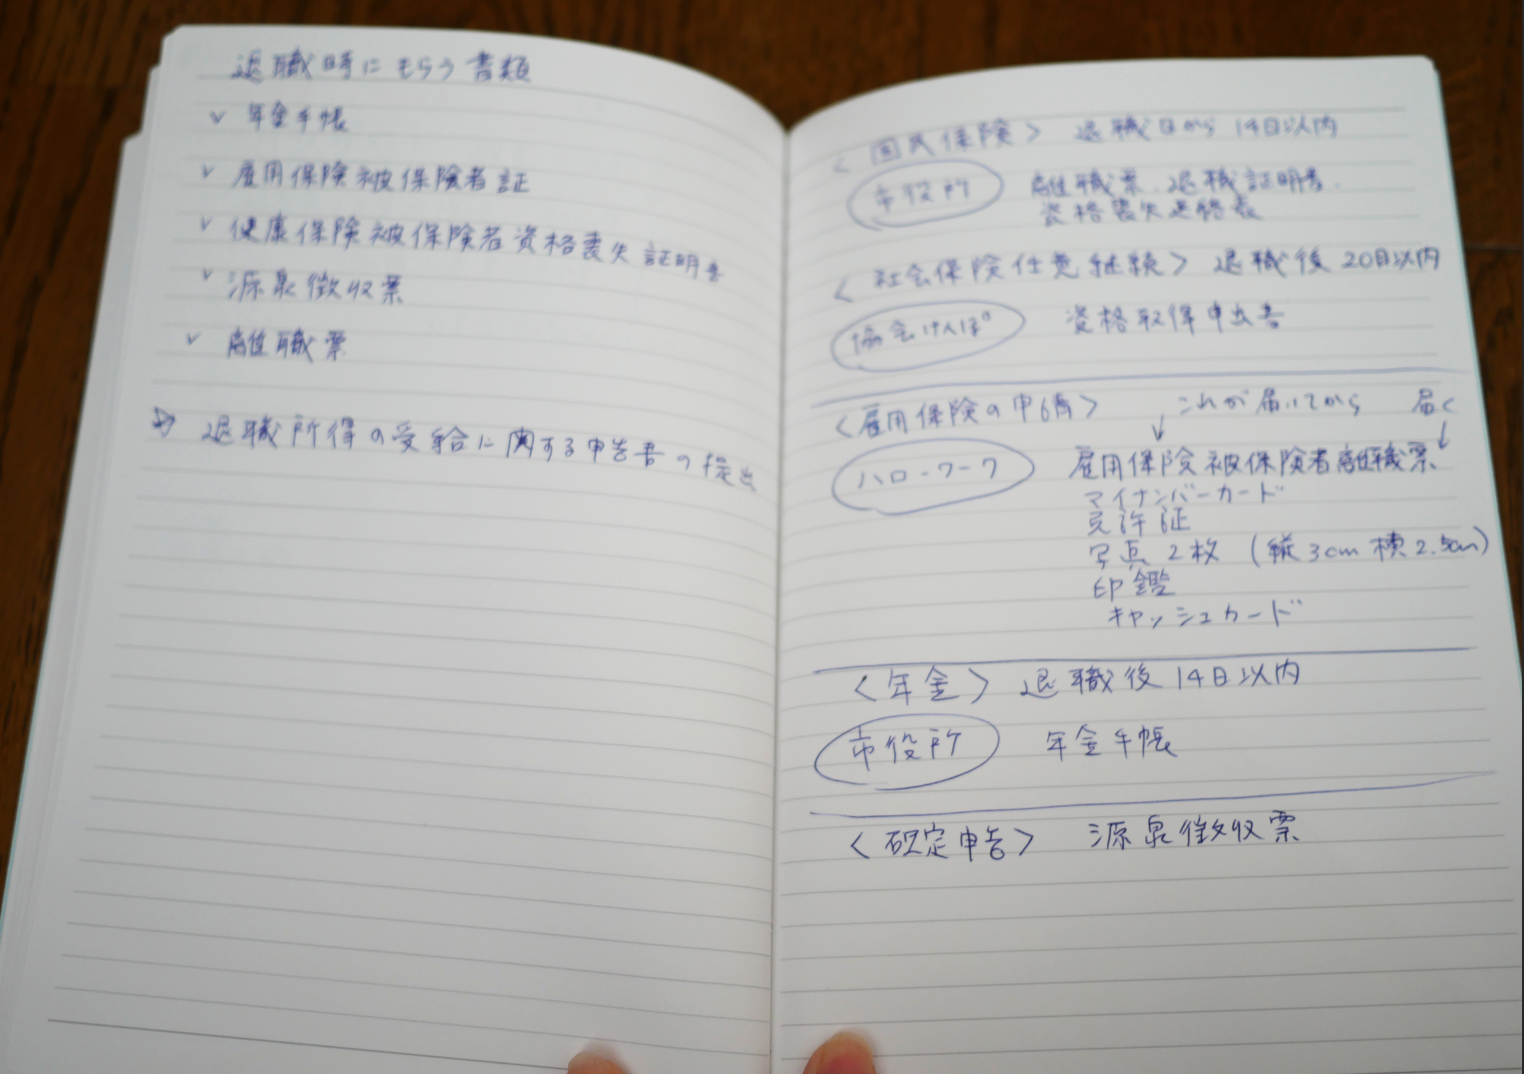 退職時にもらう書類
v 年金手帳
v 雇用保険被保険者証
v 健康保険被保険者資格喪失証明書
v 源泉徴収票
v 離職票
☆ 退職所得の受給に関する申告書の提出
<国民保険> 退職日から 14日以内
市役所 離職票、退職証明書、
資格喪失連絡表
<社会保険任意継続> 退職後 20日以内
協会けんぽ 資格取得申出書
<雇用保険の申請> これが届いてから 届く
ハローワーク 雇用保険被保険者離職票
マイナンバーカード
免許証
写真 2枚 (縦3cm 横2.5cm)
印鑑
キャッシュカード
<年金> 退職後 14日以内
市役所 年金手帳
<確定申告> 源泉徴収票